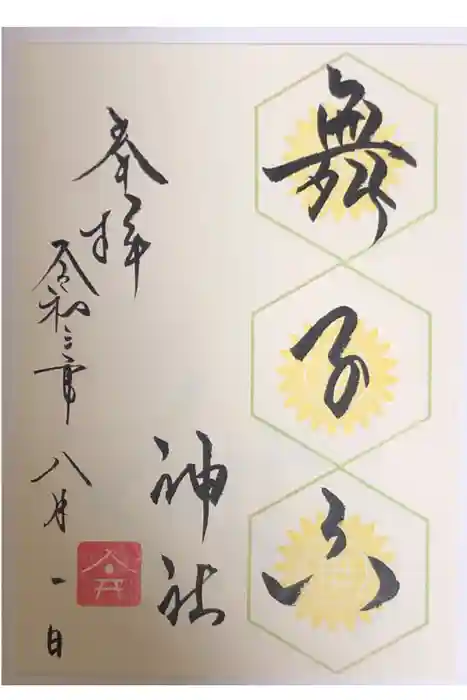 舞子六
神社
奉拝
令和三年八月一日